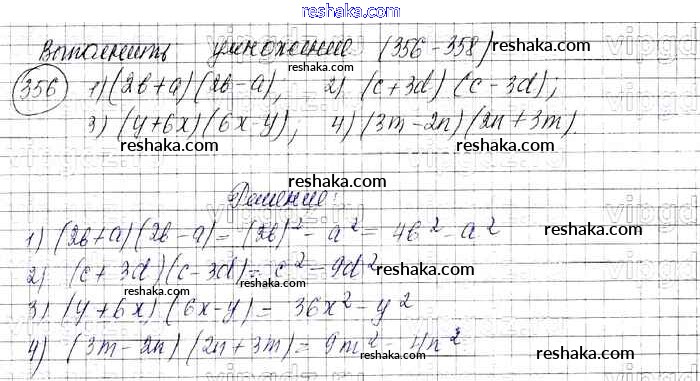 reshaka.ru
Выполнить умножение (356-358) reshaka.com
356 1) (2b+a)(2b-a); 2) (c+3d)(c-3d);
reshaka.com reshaka.com
3) (y+6x)(6x-y); 4) (3m-2n)(2n+3m).
reshaka.com
reshaka.com
Решение:
reshaka.com
1) (2b+a)(2b-a)=(2b)²-a²=4b²-a²
reshaka.com
2) (c+3d)(c-3d)=c²-9d²
reshaka.com
3) (y+6x)(6x-y)=36x²-y²
reshaka.com
4) (3m-2n)(2n+3m)=9m²-4n²
reshaka.com
reshaka.com